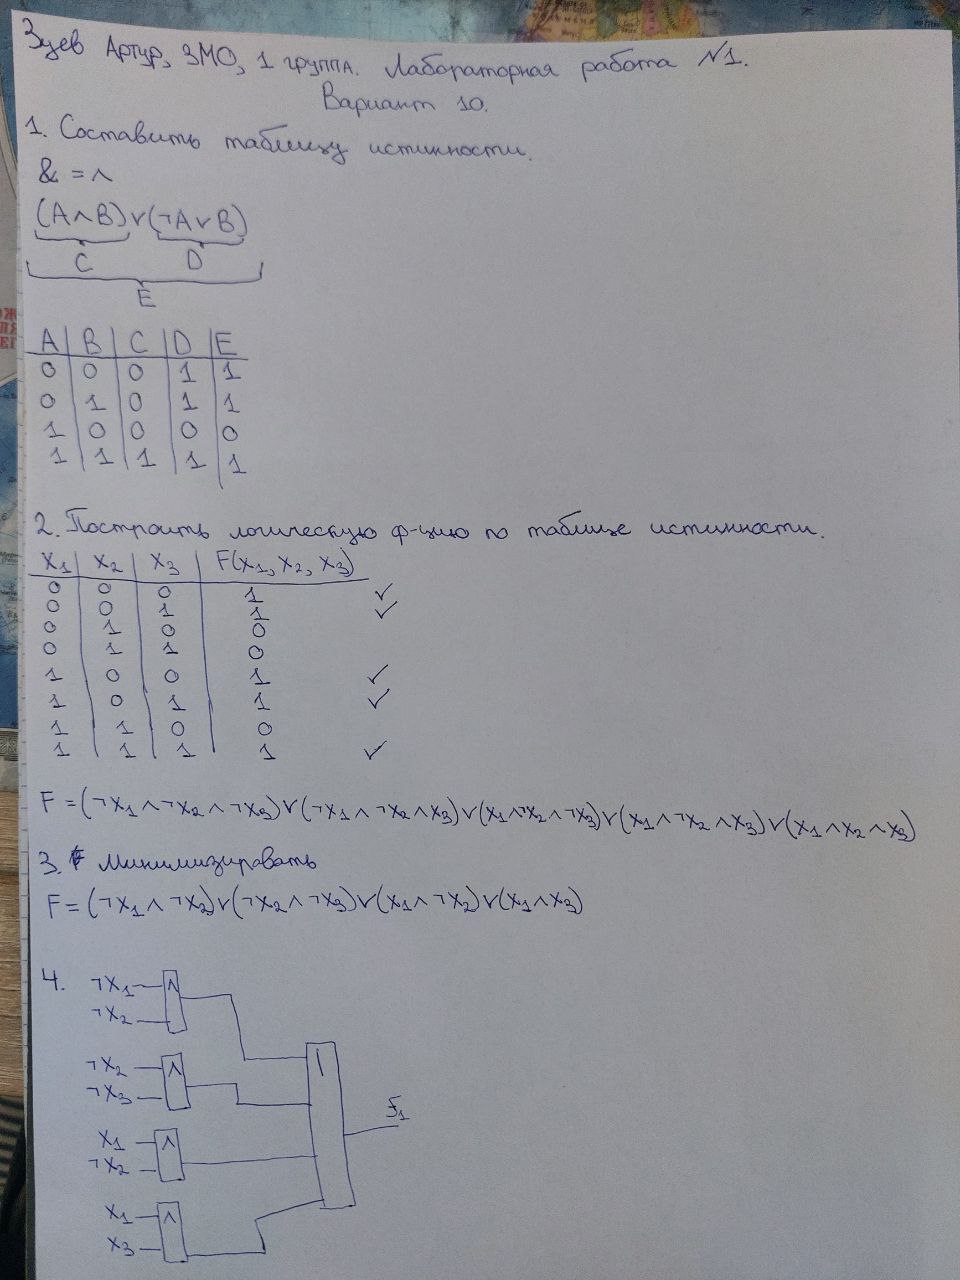 Зуев Артур, ЗМО, 1 группа. Лабораторная работа №1.
Вариант 10.
1. Составить таблицу истинности.
& = ∧
(A∧B)∨(¬A∨B)
C D
E
A B C D E
0 0 0 1 1
0 1 0 1 1
1 0 0 0 0
1 1 1 1 1
2. Построить логическую ф-цию по таблице истинности.
X1 X2 X3 F(X1, X2, X3)
0 0 0 1 ✓
0 0 1 1 ✓
0 1 0 0
0 1 1 0
1 0 0 1 ✓
1 0 1 1 ✓
1 1 0 0
1 1 1 1 ✓
F = (¬X1∧¬X2∧¬X3)∨(¬X1∧¬X2∧X3)∨(X1∧¬X2∧¬X3)∨(X1∧¬X2∧X3)∨(X1∧X2∧X3)
3. Минимизировать
F = (¬X1∧¬X2)∨(¬X2∧¬X3)∨(X1∧¬X2)∨(X1∧X3)
4. ¬X1 ∧
¬X2
¬X2 ∧ 1
¬X3
F1
X1 ∧
¬X2
X1 ∧
X3